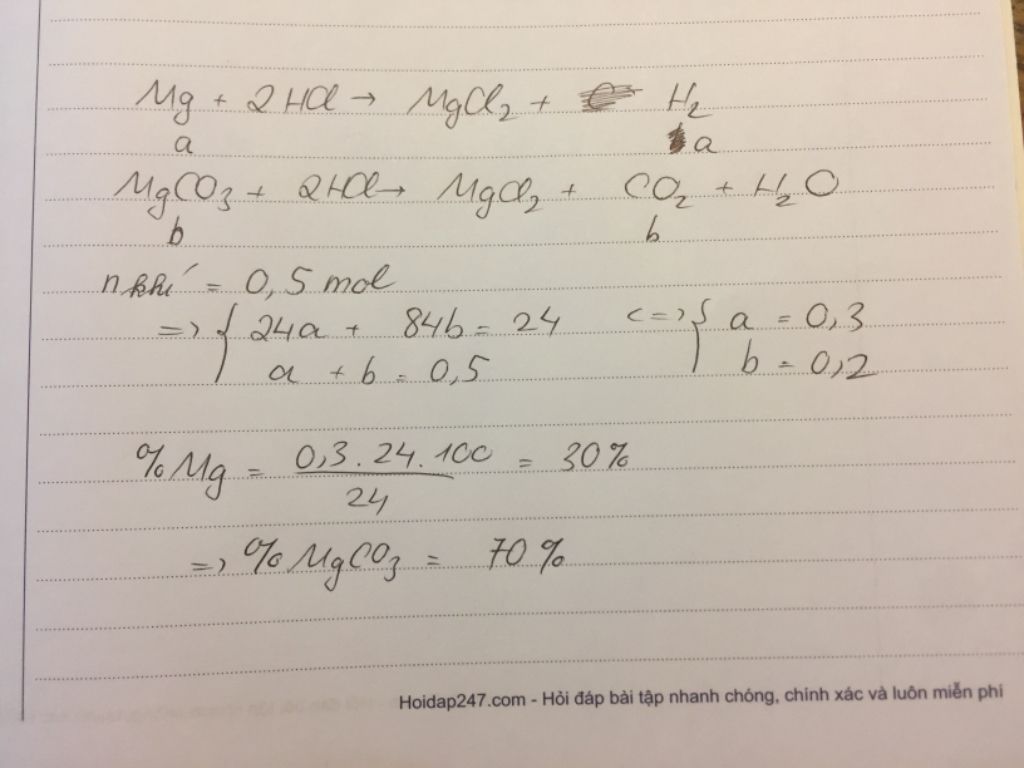 Mg + 2HCl → MgCl₂ + H₂
a a
MgCO₃ + 2HCl → MgCl₂ + CO₂ + H₂O
b b
n khí = 0,5 mol
=> { 24a + 84b = 24 <=> { a = 0,3
a + b = 0,5 b = 0,2
%Mg = 0,3 . 24 . 100 = 30%
24
=> %MgCO₃ = 70%
Hoidap247.com - Hỏi đáp bài tập nhanh chóng, chính xác và luôn miễn phí